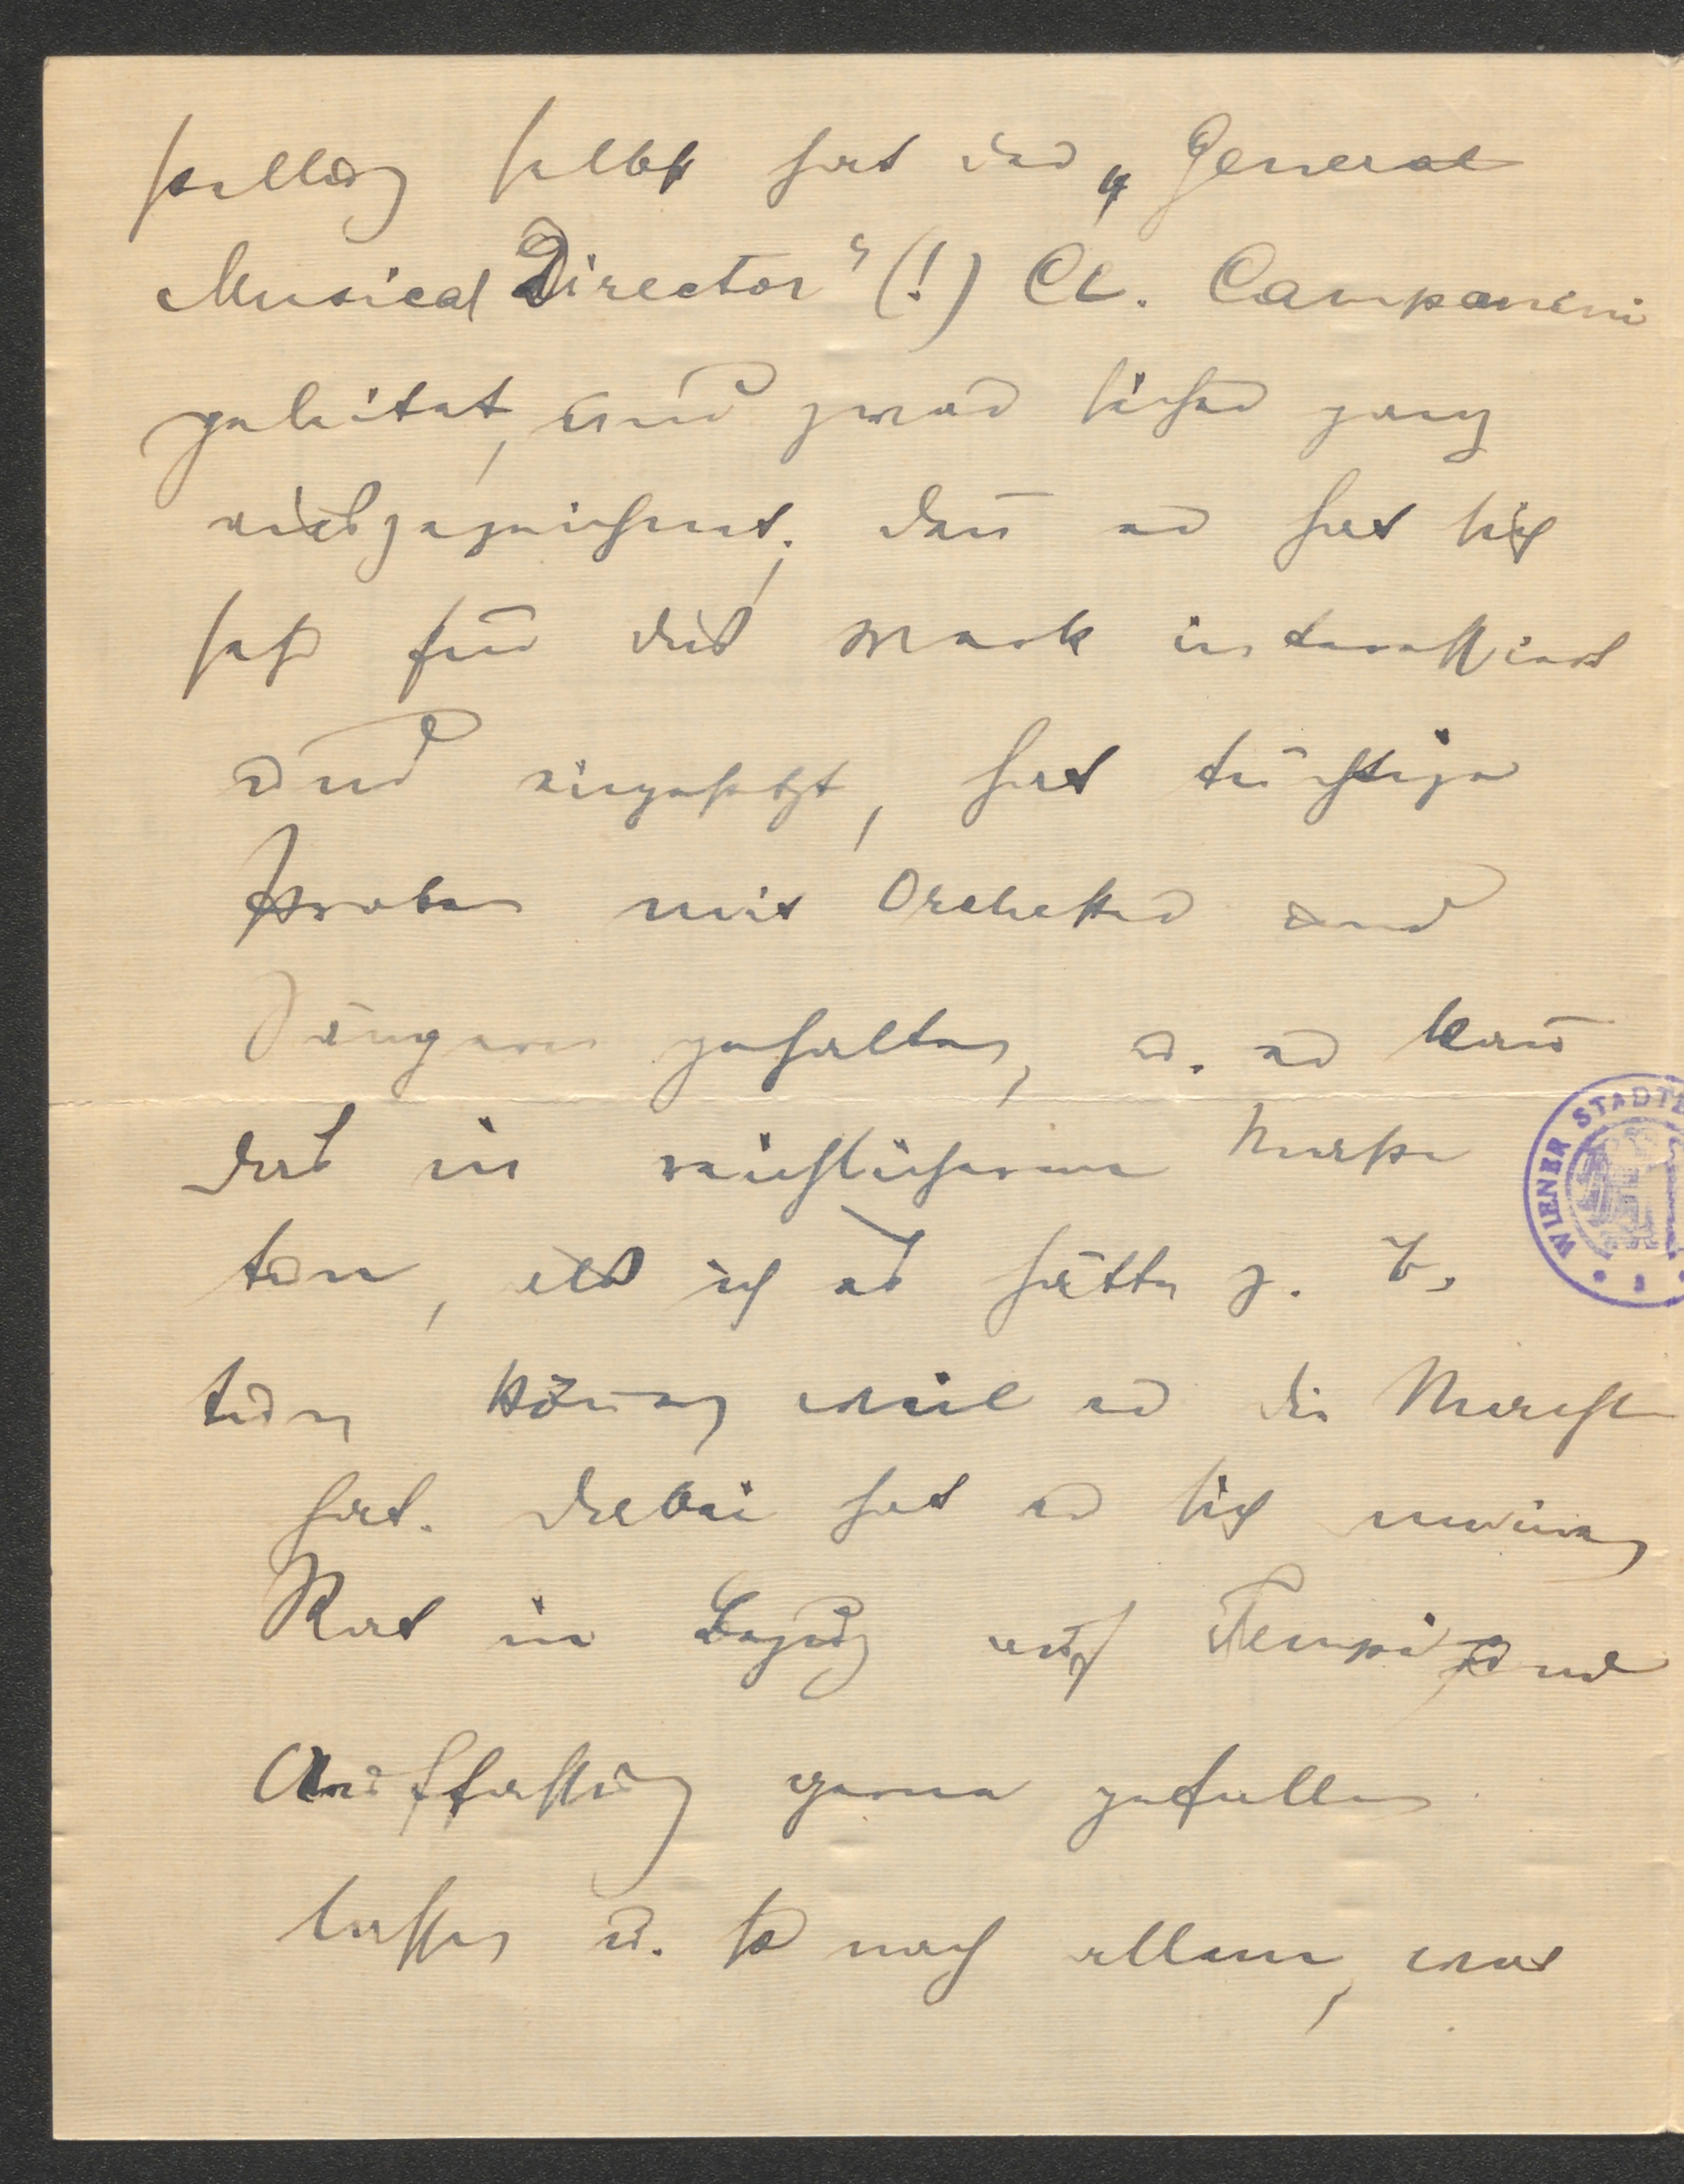 stellung selbst hat der „General
Musical Director“ (!) Cl. Campanini
geleitet, und zwar sicher ganz
ausgezeichnet; den̅ er hat sich
sehr für das Werk interessiert
und eingesetzt, hat tüchtige
Proben mit Orchester und
Sängern gehalten, u. er kan̅
das in reichlicherem Maße
tun, als ich es hätte z. B.
tun kön̅en weil er die Macht
hat. Dabei hat er sich meinen
Rat in Bezug auf Tempi und
Auffassung gerne gefallen
lassen u. so nach allem, was
WIENER STADTB